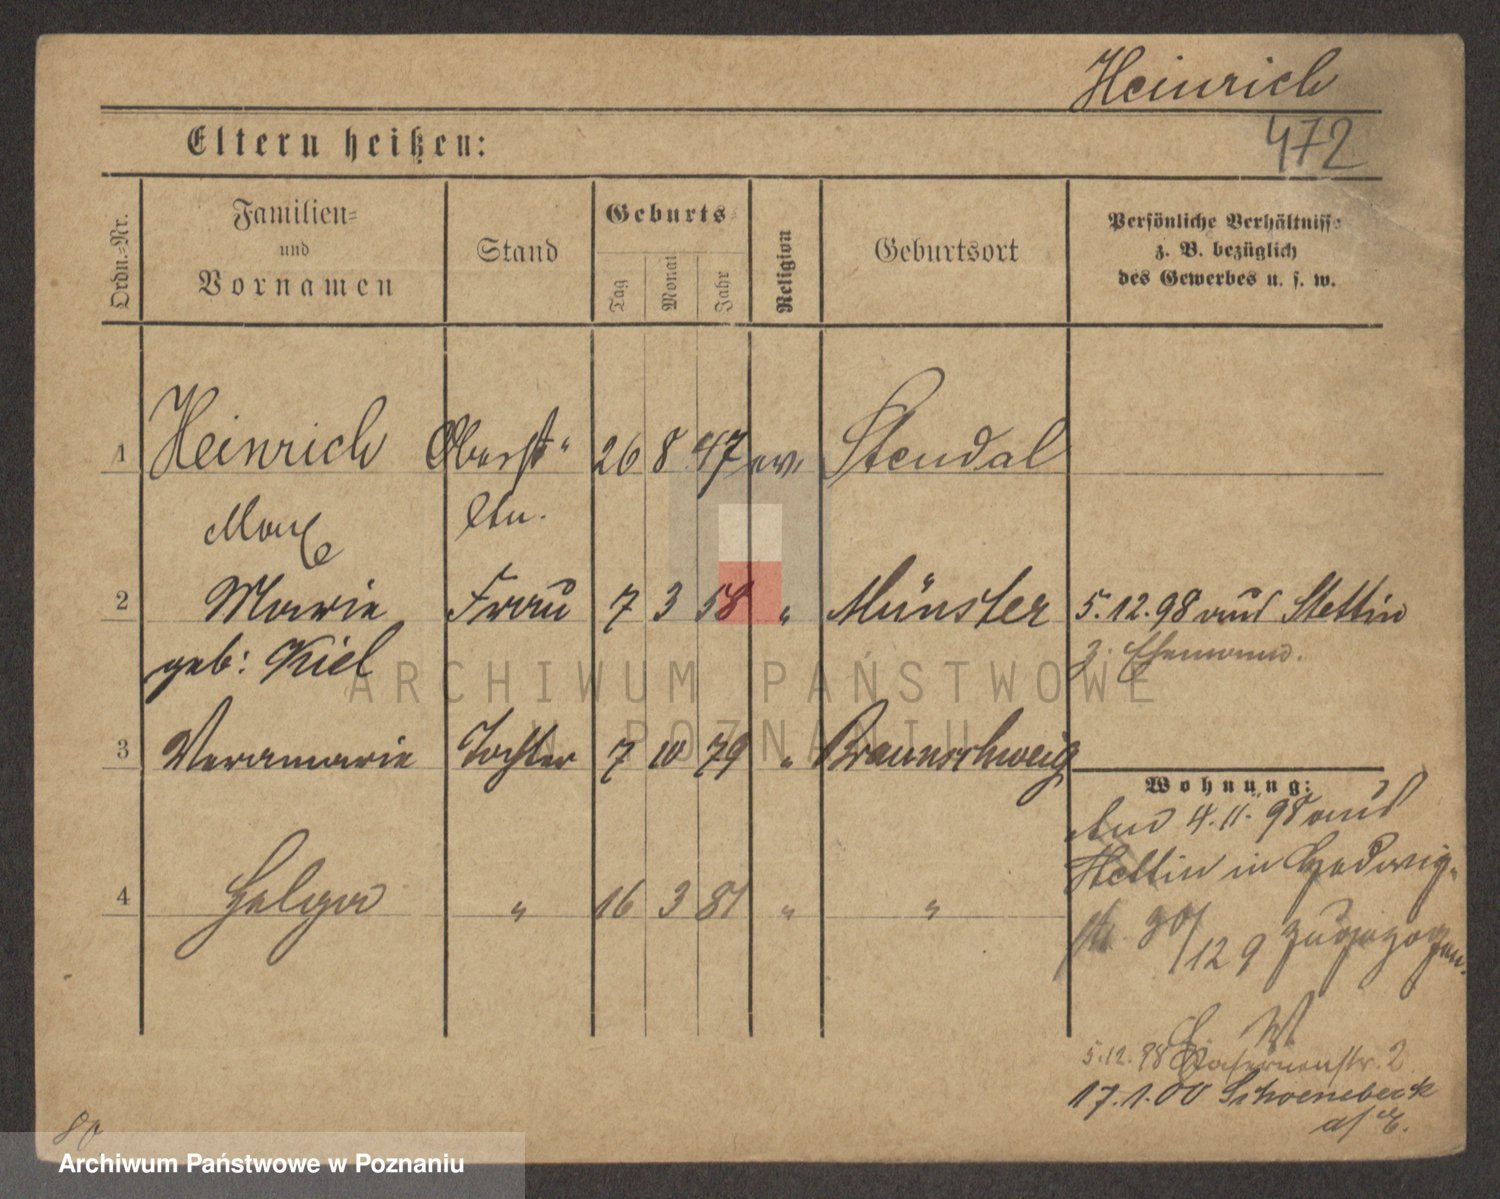 Heinrich
472
Eltern heißen:
Ordn.-Nr.
Familien-
und
Vornamen
Stand
Geburts-
Tag
Monat
Jahr
Religion
Geburtsort
Persönliche Verhältnisse
z. B. bezüglich
des Gewerbes u. s. w.
1 Heinrich Oberst- 26 8 47 ev. Stendal
Max Ltn.
2 Marie Frau 7 3 58 " Münster 5.12.98 aus Stettin
geb: Kiel z. Ehemann.
3 Veramarie Tochter 7 10 79 " Braunschweig
Wohnung:
Am 4.11.98 aus
Stettin in Hedwig-
4 Helga " 16 3 81 " "
str. 30/ zugezogen.
5.12.98 Kasernenstr. 2
17.1.00 Schoenebeck
a/E.
80
ARCHIWUM PAŃSTWOWE
W POZNANIU
Archiwum Państwowe w Poznaniu